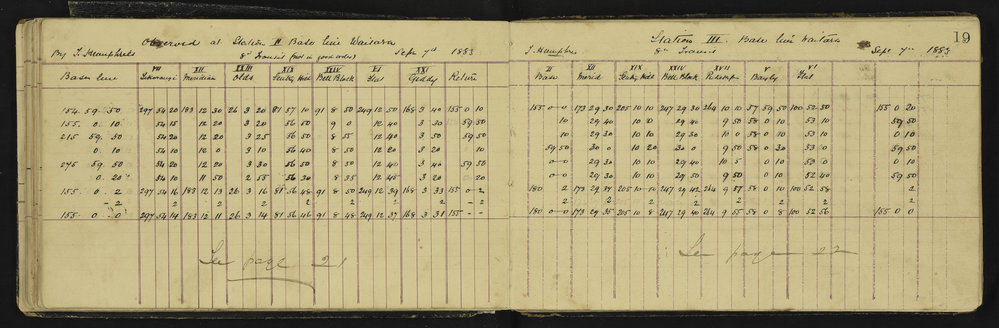 19
Observed at Station II Base line Waitara
By T. Humphries Sept 7d 1883
8" Transit (not in good order)
VII XII XXIII XIX XXIV VI XXI
Base line Meridian Olds Bell Block Return
154. 59. 50 297 54 20 183 12 30 26 3 20 81 57 10 91 8 50 249 12 50 168 3 40 155 0 10
155. 0. 10 54 15 12 20 3 20 56 50 9 0 12 40 3 30 59 50
215 59. 50 54 20 12 20 3 25 56 50 8 55 12 40 3 30 59 50
0. 10 54 10 12 0 3 10 56 40 8 50 12 20 3 20 10
275 59. 50 54 20 12 20 3 30 56 50 8 50 12 40 3 40 59 50
0. 20 54 10 11 50 2 55 56 30 8 35 12 45 3 20
155. 0. 2 297 54 16 183 12 13 26 3 16 81 56 48 91 8 50 249 12 39 168 3 33 155 0 2
- 2 2 2 2 2 2 2 2 2
155. 0. 0 297 54 14 183 12 11 26 3 14 81 56 46 91 8 48 249 12 37 168 3 31 155 - -
See page 21
Station III Base line Waitara
T. Humphries 8" Transit Sept 7th 1883
II XII XIX XXIV XV V VI
Base Merid Bell Block Bayly
155 0 0 173 29 30 205 10 10 247 29 30 264 10 10 57 59 50 100 52 50 155 0 20
10 29 40 10 10 29 40 9 50 58 0 0 53 10 59 50
10 29 30 10 10 29 30 10 0 58 0 10 53 10 0 10
59 50 30 0 10 20 30 0 9 50 58 0 30 53 0 59 50
0 0 29 30 10 10 29 40 10 5 0 10 53 0 0 10
0 0 29 30 10 10 29 50 9 50 0 10 52 40 59 50
180 2 173 29 37 205 10 10 247 29 42 264 9 57 58 0 10 100 52 58 2
2 2 2 2 2 2 2 2
180 0 0 173 29 35 205 10 8 247 29 40 264 9 55 58 0 8 100 52 56 155 0 0
See page 22